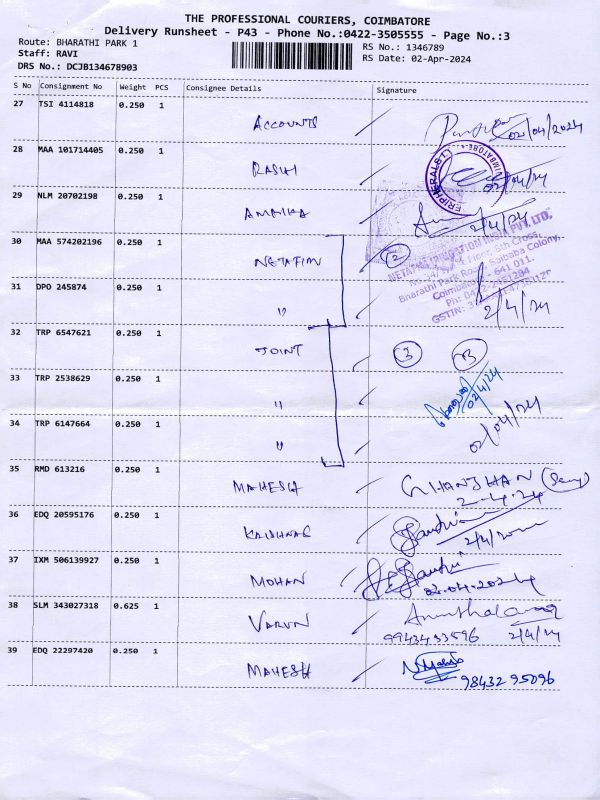 THE PROFESSIONAL COURIERS, COIMBATORE
Delivery Runsheet - P43 - Phone No.:0422-3505555 - Page No.:3
Route: BHARATHI PARK 1
RS No.: 1346789
Staff: RAVI
RS Date: 02-Apr-2024
DRS No.: DCJB134678903
S No Consignment No Weight PCS Consignee Details Signature
27 TSI 4114818 0.250 1 ACCOUNTS 02/04/2024
28 MAA 101714405 0.250 1 RASHI 02/04/24
29 NLM 20702198 0.250 1 2/4/24
30 MAA 574202196 0.250 1 NETAFIM 2
NETAFIM IRRIGATION INDIA PVT. LTD.
Cross,
Bharathi Park Road, Saibaba Colony,
Coimbatore - 641 011.
31 DPO 245874 0.250 1 " 2/4/24
32 TRP 6547621 0.250 1 JOINT 3
33 TRP 2538629 0.250 1 " 02/4/24
34 TRP 6147664 0.250 1 " 02/04/24
35 RMD 613216 0.250 1 MAHESH 2-4-24
36 EDQ 20595176 0.250 1 KRISHNAS
37 IXM 506139927 0.250 1 MOHAN 02-04-2024
38 SLM 343027318 0.625 1 VARUN
9943433596 2/4/24
39 EDQ 22297420 0.250 1 MAHESH
98432 95096